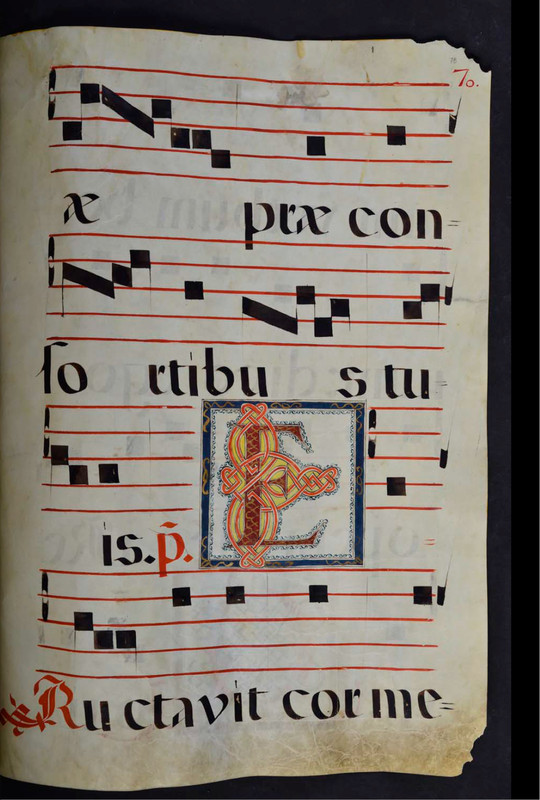 70.
æ præ con=
so rtibu s tu=
is. p̃. E=
Ru ctavit cor me=